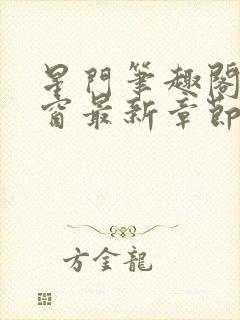 星門筆趣閣
窗最新章節
方金龍